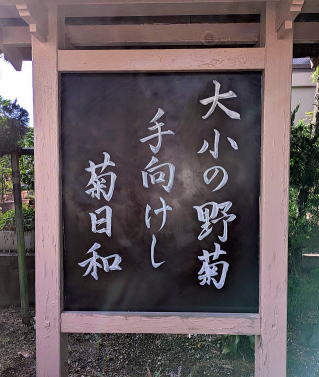 大小の野菊
手向けし
菊日和